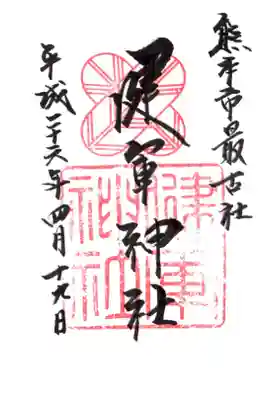 熊本市最古社
健軍神社
平成二十六年四月十九日
健軍神社